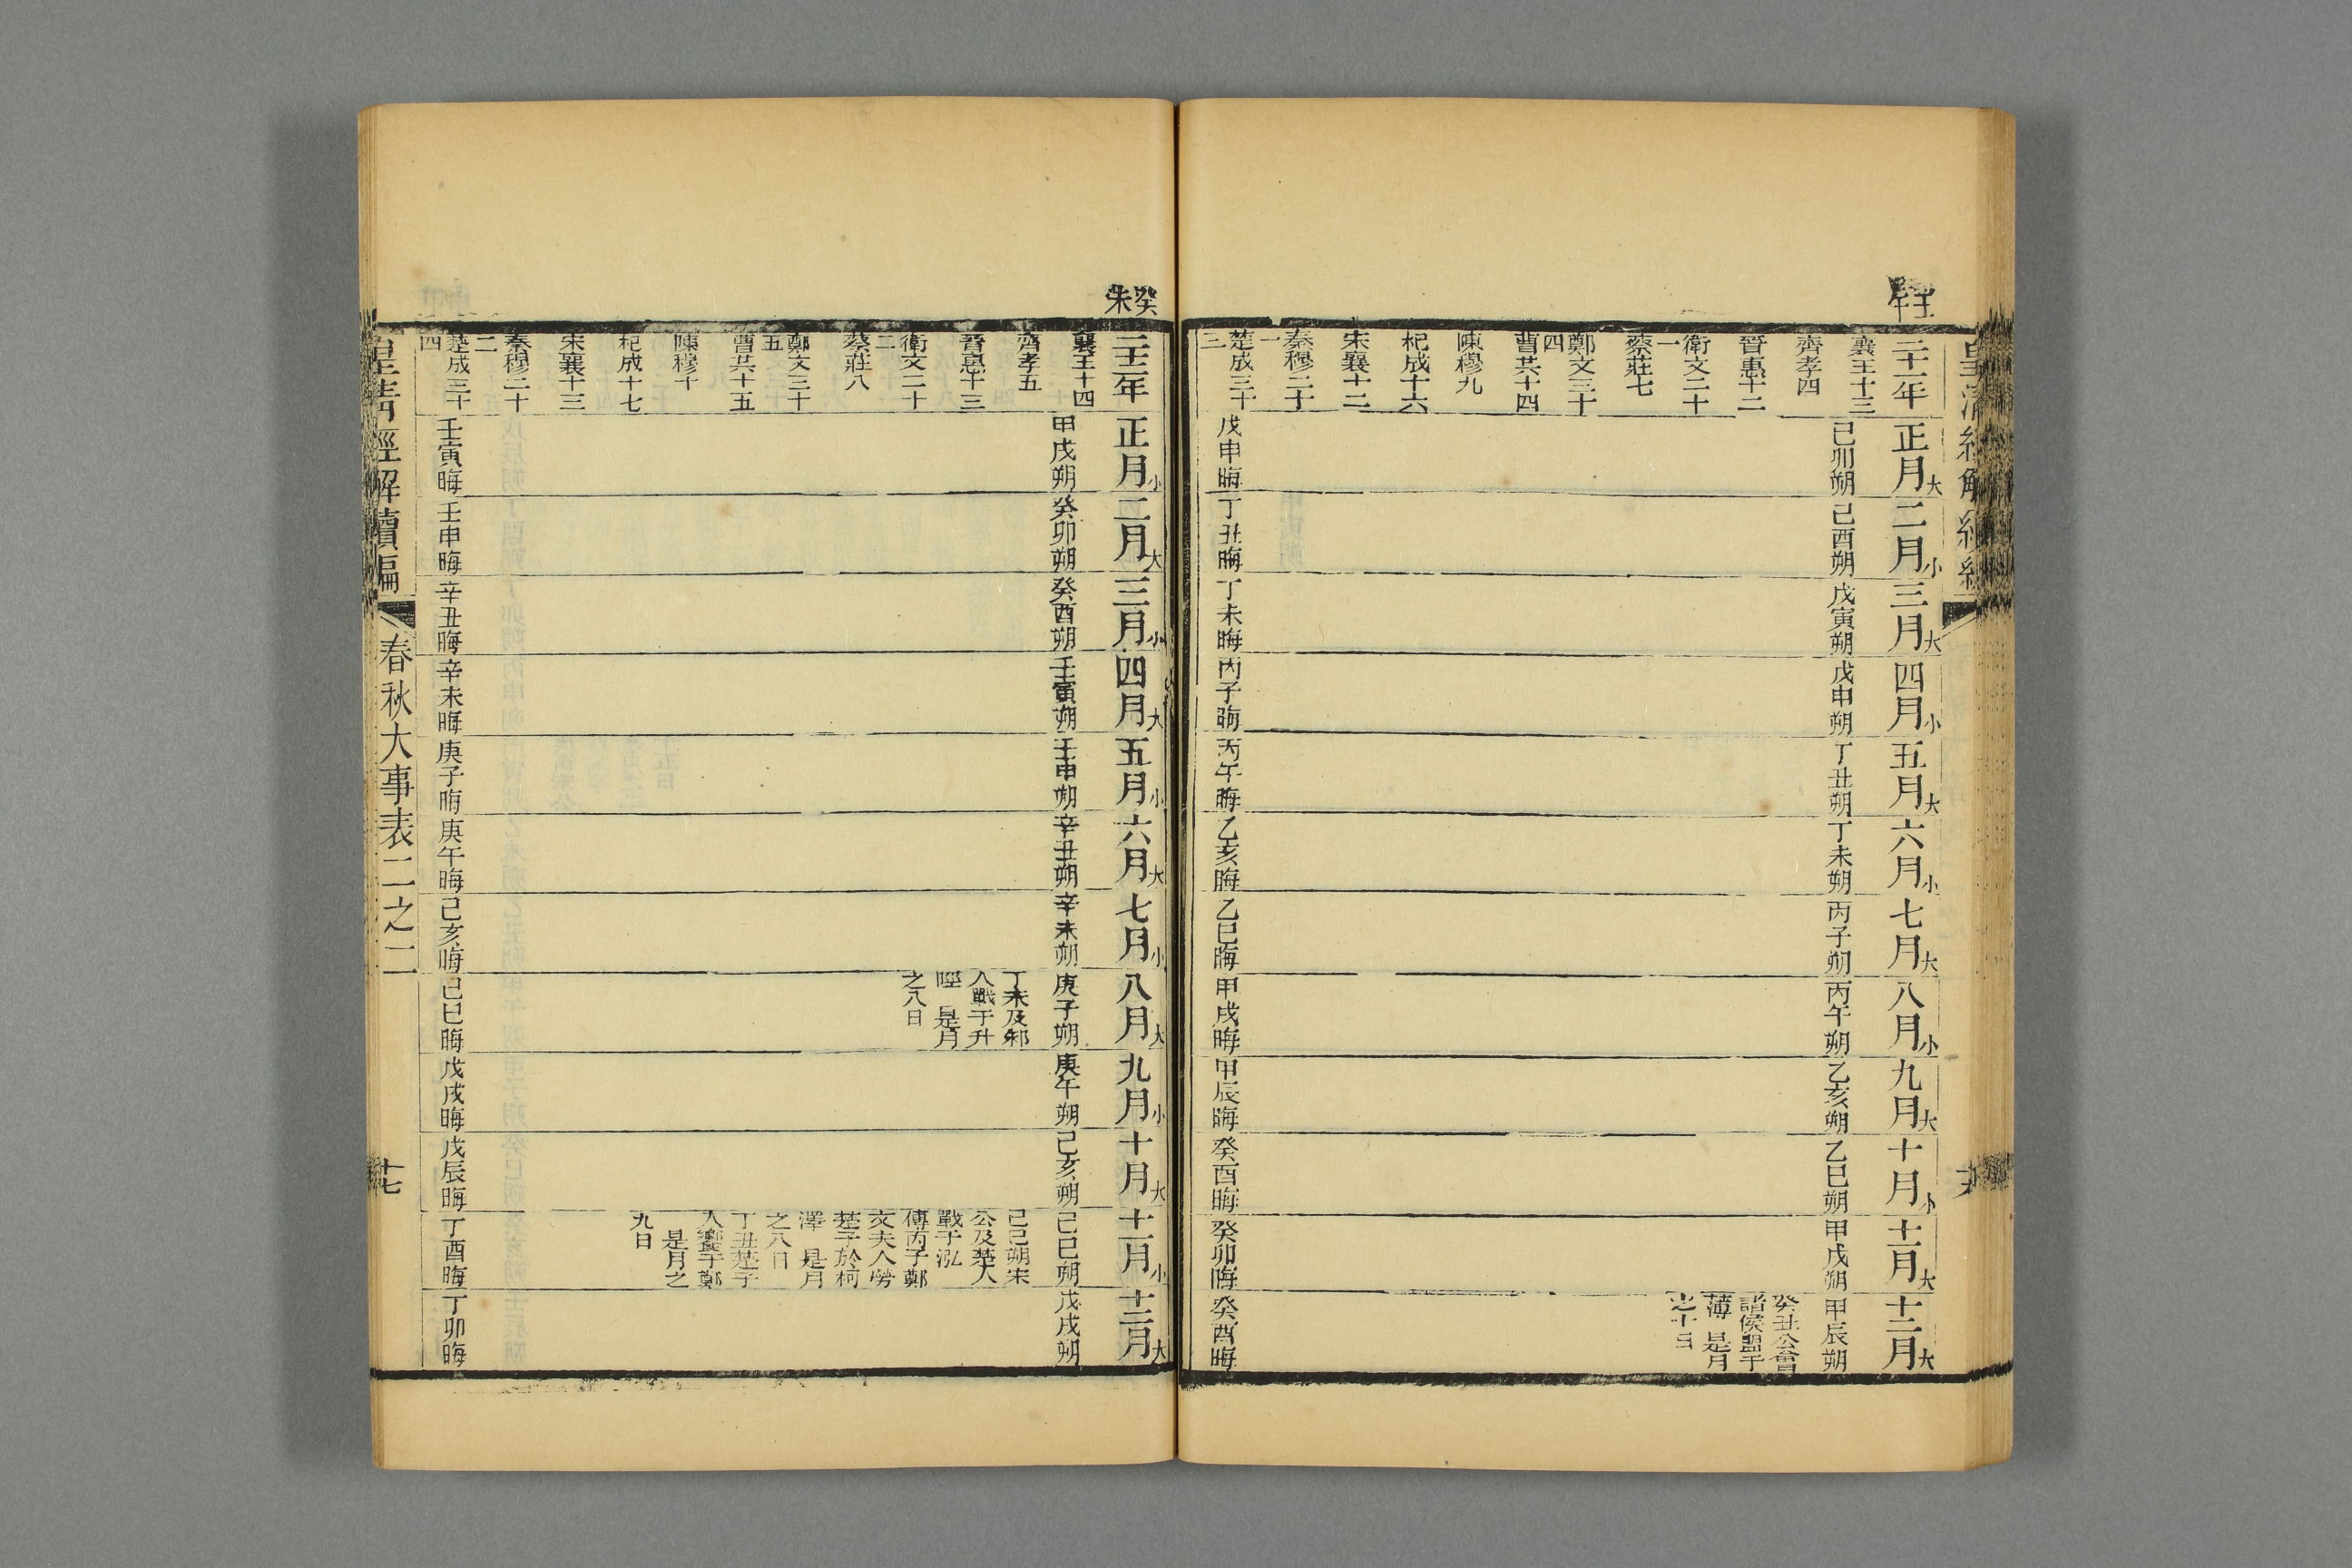 皇清經解續編
壬午
二十一年
襄王十三
齊孝四
晉惠十二
衛文二十
一
蔡莊七
鄭文三十
四
曹共十四
陳穆九
杞成十六
宋襄十二
秦穆二十
一
楚成三十
三
正月大
己卯朔
戊申晦
二月小
己酉朔
丁丑晦
三月大
戊寅朔
丁未晦
四月小
戊申朔
丙子晦
五月大
丁丑朔
丙午晦
六月小
丁未朔
乙亥晦
七月大
丙子朔
乙巳晦
八月小
丙午朔
甲戌晦
九月大
乙亥朔
甲辰晦
十月小
乙巳朔
癸酉晦
十一月大
甲戌朔
癸卯晦
十二月大
甲辰朔
癸丑公會
諸侯盟于
薄 是月
之十日
癸酉晦
癸未
二十二年
襄王十四
齊孝五
晉惠十三
衛文二十
二
蔡莊八
鄭文三十
五
曹共十五
陳穆十
杞成十七
宋襄十三
秦穆二十
二
楚成三十
四
正月小
甲戌朔
壬寅晦
二月大
癸卯朔
壬申晦
三月小
癸酉朔
辛丑晦
四月大
壬寅朔
辛未晦
五月小
壬申朔
庚子晦
六月大
辛丑朔
庚午晦
七月小
辛未朔
己亥晦
八月大
庚子朔
丁未及邾
人戰于升
陘 是月
之八日
己巳晦
九月小
庚午朔
戊戌晦
十月大
己亥朔
戊辰晦
十一月小
己巳朔
己巳朔宋
公及楚人
戰于泓
傳丙子鄭
文夫人勞
楚子於柯
澤 是月
之八日
丁丑楚子
入饗于鄭
是月之
九日
丁酉晦
十二月大
戊戌朔
丁卯晦
皇清經解續編
春秋大事表二之二
十七